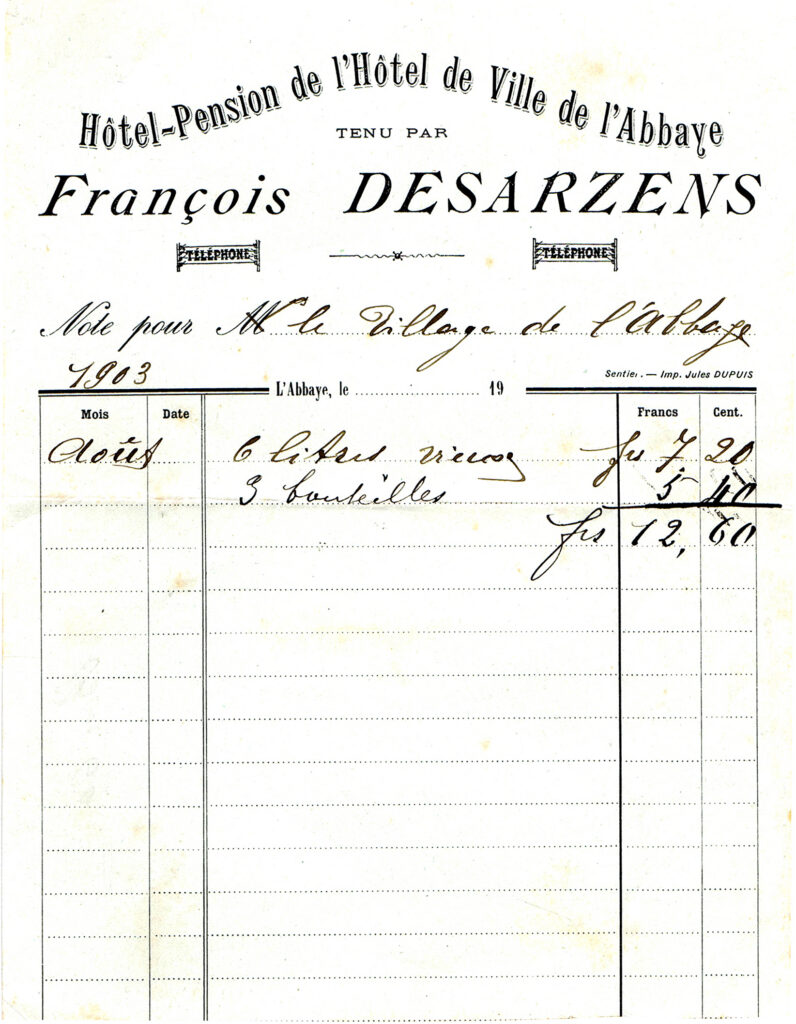 Hôtel-Pension de l'Hôtel de Ville de l'Abbaye
TENU PAR
François DESARZENS
TÉLÉPHONE TÉLÉPHONE
Note pour M le Village de l'Abbaye
1903
Sentier. — Imp. Jules DUPUIS
L'Abbaye, le 19
Mois Date Francs Cent.
Août 6 litres vieux frs 7 20
3 bouteilles 5 40
frs 12, 60